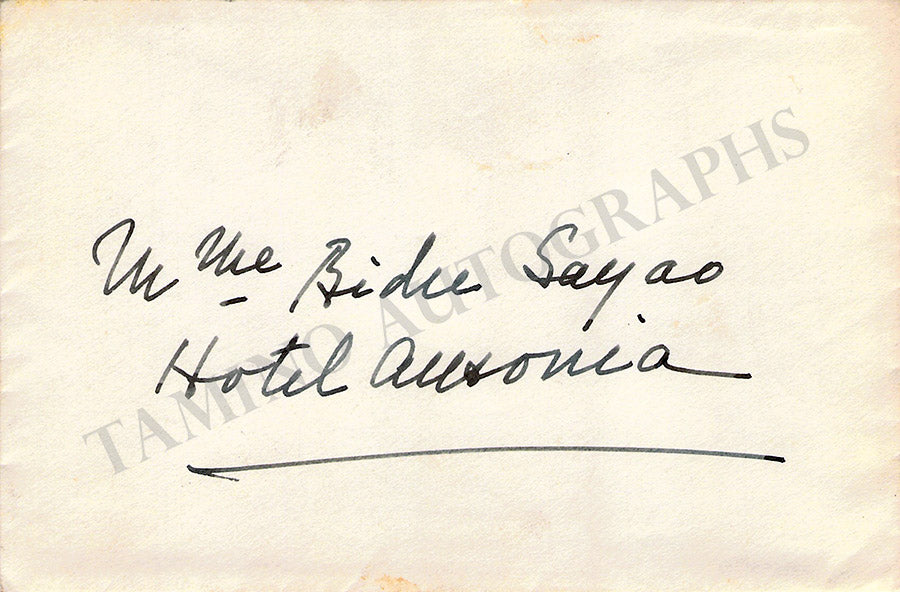 Mme Bidu Sayao
Hotel Ausonia
TAMINO AUTOGRAPHS